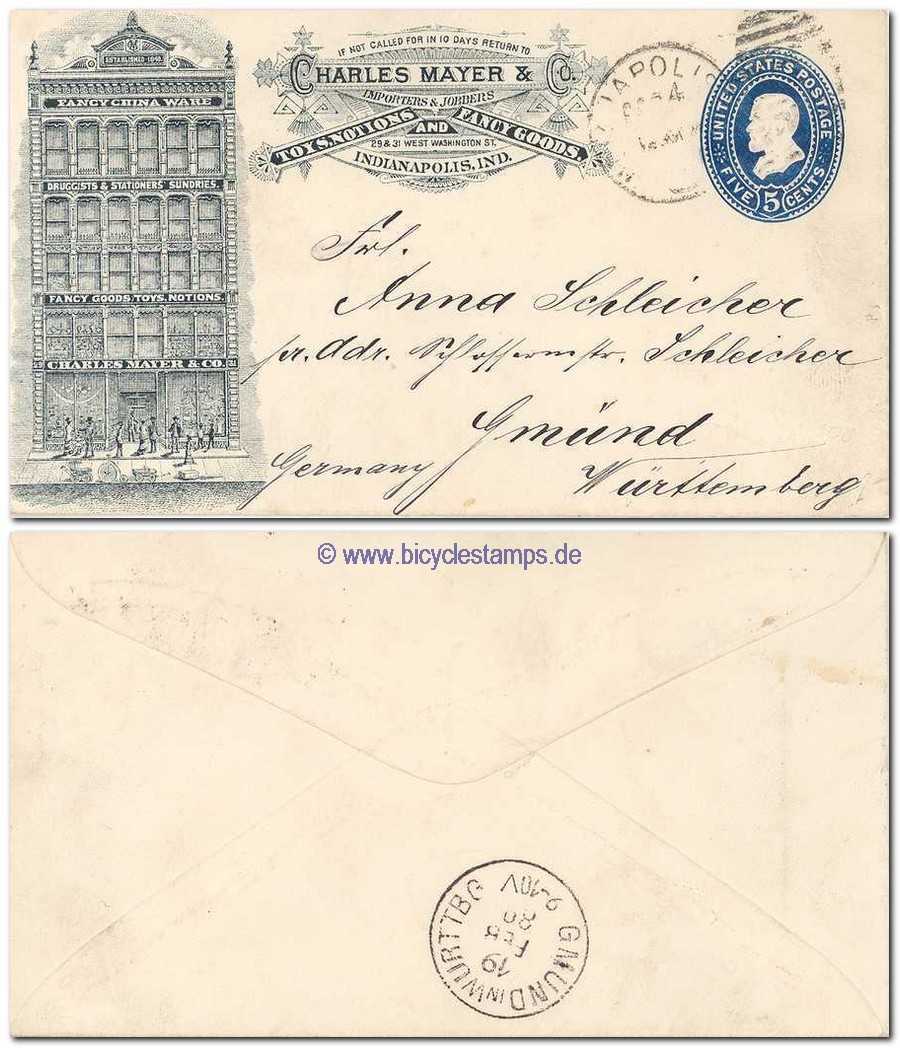 ESTABLISHED 1840.
FANCY CHINA WARE
DRUGGISTS & STATIONERS' SUNDRIES.
FANCY GOODS, TOYS, NOTIONS.
CHARLES MAYER & CO.
IF NOT CALLED FOR IN 10 DAYS RETURN TO
CHARLES MAYER & CO.
IMPORTERS & JOBBERS
TOYS, NOTIONS AND FANCY GOODS.
29 & 31 WEST WASHINGTON ST.
INDIANAPOLIS, IND.
UNITED STATES POSTAGE
FIVE 5 CENTS
Frl.
Anna Schleicher
pr. Adr. Schlossermstr. Schleicher
Gmünd
Germany
Württemberg
© www.bicyclestamps.de
GMUND IN WURTTBG
19
FEB
9-10V